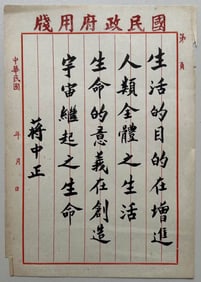 國民政府用牋
第 頁
生活的目的在增進
人類全體之生活
生命的意義在創造
宇宙繼起之生命
蔣中正
中華民國 年 月 日